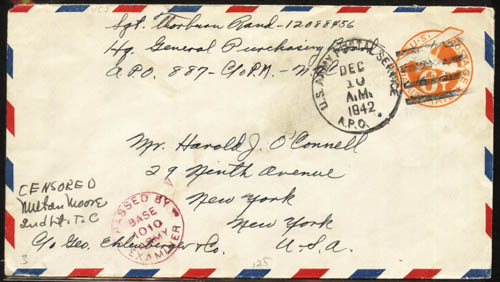 Sgt. Thorburn Rand - 12088456
Hq. General Purchasing
A.P.O. 887 - C/o P.M. - N.Y.C.
U.S. ARMY POSTAL SERVICE
DEC
10
A.M.
1942
A.P.O.
U.S. POSTAGE
6¢
Mr. Harold J. O'Connell
29 Ninth Avenue
New York
New York
U.S.A.
CENSORED
Milton Moore
2nd Lt. T.C
PASSED BY
BASE
1010
ARMY
EXAMINER
C/o Geo. Ehlenberger & Co.
3
125